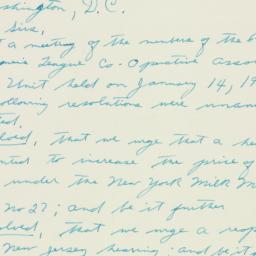 shington, D.C.
Sirs,
t a meeting of the members of the
League Co-Operative Assoc
Unit held on January 14, 19
ollowing resolutions were unanim
ted.
olved, that we urge that a hea
nted to increase the price of
under the New York Milk M
No 27; and be it further
olved, that we urge a reop
New Jersey hearing; and be it